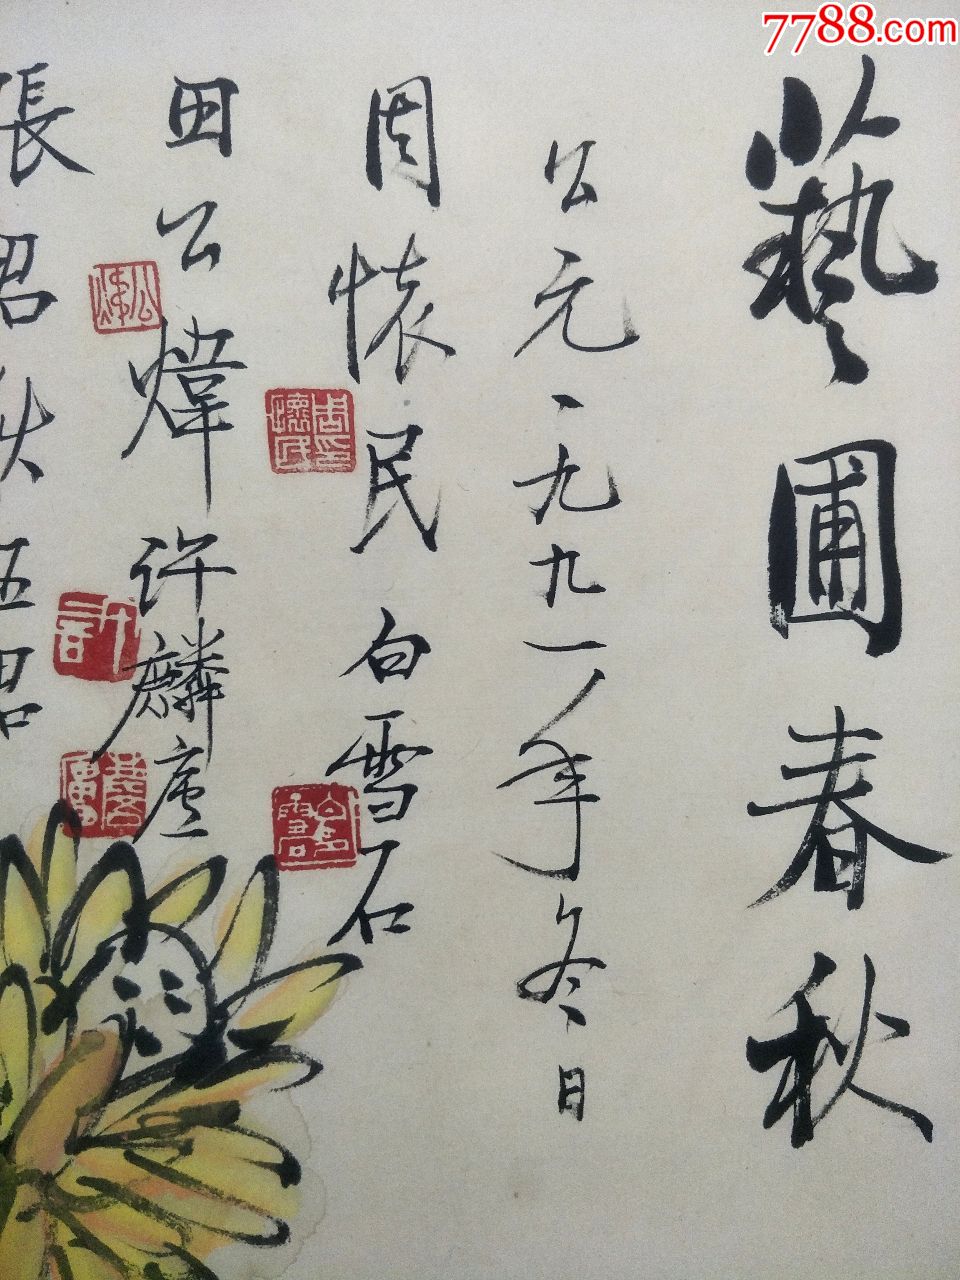 7788.com
藝圃春秋
公元一九九一年冬日
周懷民 白雪石
田公煒 许麟廬
張君秋 伍君